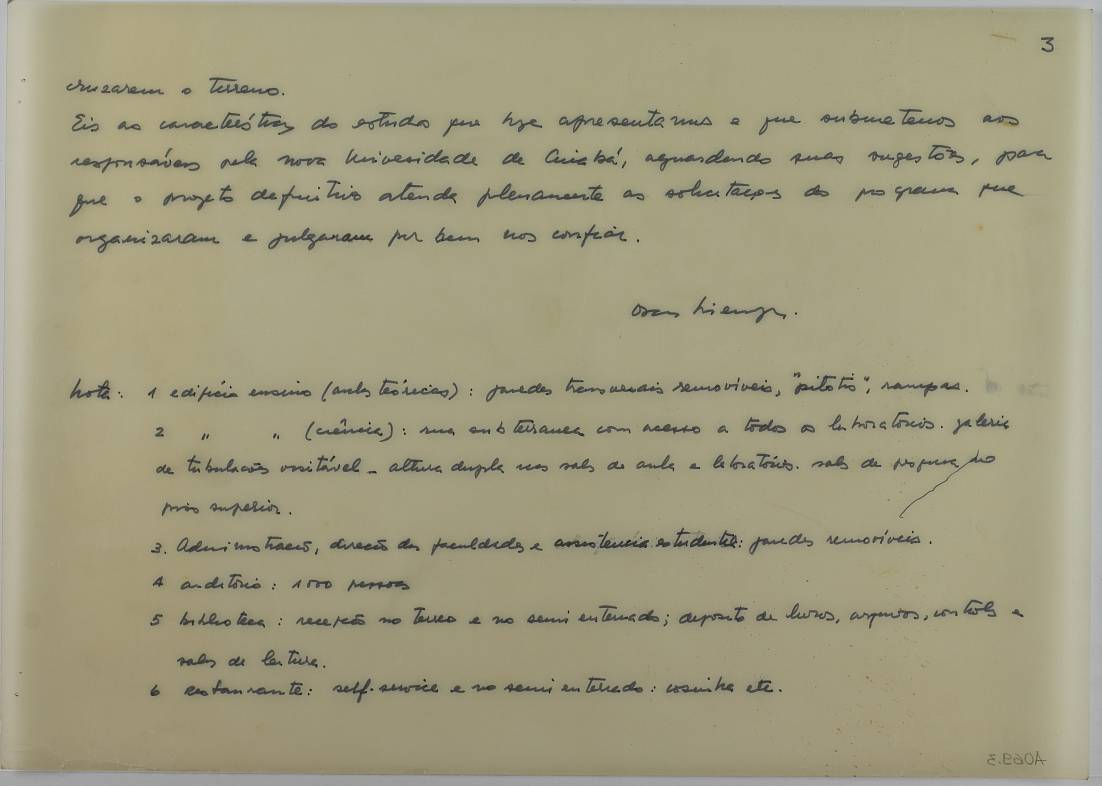 3
cruzarem o terreno.
Eis as características do estudo que hoje apresentamos e que submetemos aos
responsáveis pela nova Universidade de Cuiabá, aguardando suas sugestões, para
que o projeto definitivo atenda plenamente as solicitações do programa que
organizaram e julgaram por bem nos confiar.
Oscar Niemeyer.
Nota: 1 edifício ensino (aulas teóricas): paredes transversais removíveis, "pilotis", rampas.
2 " " (ciência): rua subterranea com acesso a todos os laboratórios. galeria
de tubulações visitável - altura dupla nas salas de aula e laboratórios. salas de pesquisa no
piso superior.
3. Administração, direção das faculdades e assistencia estudantil: paredes removíveis.
4 auditório: 1000 pessoas
5 biblioteca: recepção no terreo e no semi enterrado; deposito de livros, arquivos, controle e
salas de leitura.
6 restaurante: self-service e no semi enterrado: cosinha etc.
A069.3